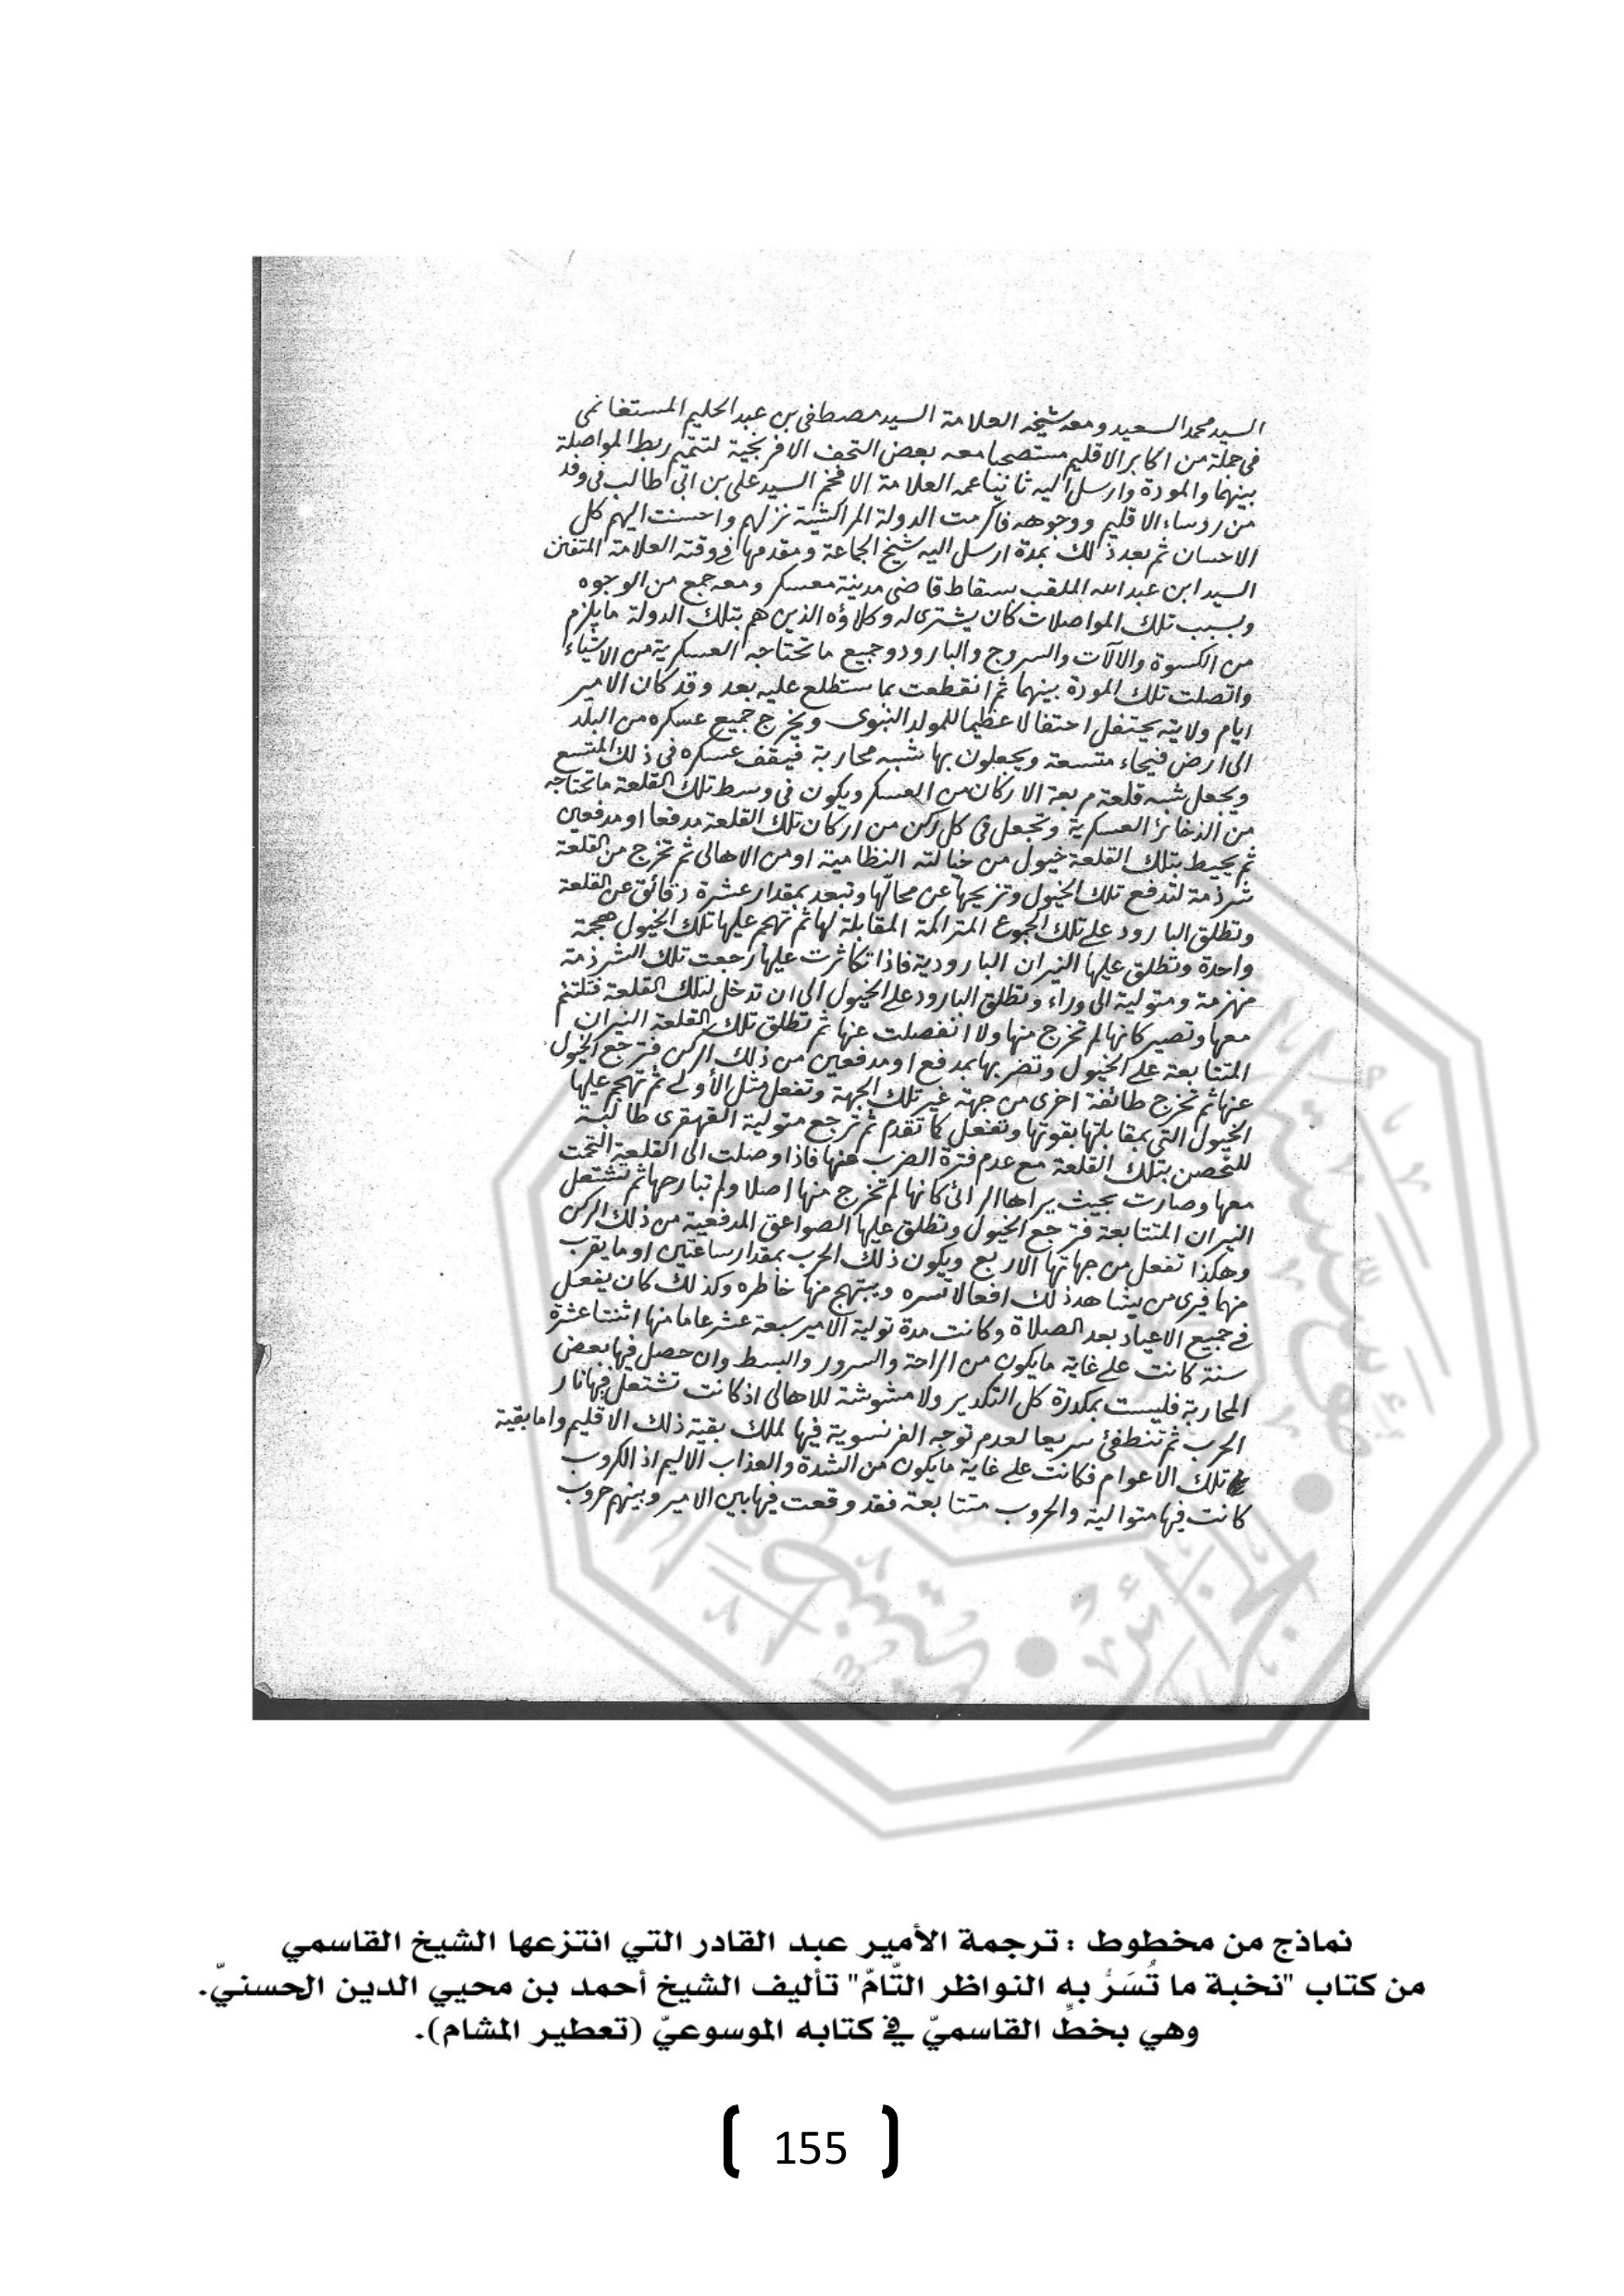 السيد محمد السعيد ومعه شيخه العلامة السيد مصطفى بن عبد الحليم المستغانمى
فى جملة من اكابر الاقليم مستصحبا معه بعض التحف الافرنجية لتتميم ربط المواصلة
بينهما والمودة وارسل اليه ثانيا عمه العلامة الافخم السيد على بن ابى طالب فى وفد
من روساء الاقليم ووجوهه فاكرمت الدولة المراكشية نزلهم واحسنت اليهم كل
الاحسان ثم بعد ذلك بمدة ارسل اليه شيخ الجماعة ومقدمها فى وقته العلامة المتفنن
السيد ابن عبد الله الملقب بسقاط قاضى مدينة معسكر ومعه جمع من الوجوه
وبسبب تلك المواصلات كان يشترى له وكلاؤه الذين هم بتلك الدولة ما يلزم
من الكسوة والالآت والسروج والبارود وجميع ما تحتاجه العسكرية من الاشياء
واتصلت تلك المودة بينهما ثم انقطعت بما ستطلع عليه بعد وقد كان الامير
ايام ولايته يحتفل احتفالا عظيما للمولد النبوى ويخرج جميع عسكره من البلد
الى ارض فيحاء متسعة ويجعلون بها شبه محاربة فيقف عسكره فى ذلك المتسع
ويجعل شبه قلعة مربعة الاركان من العسكر ويكون فى وسط تلك القلعة ما تحتاجه
من الذخائر العسكرية وتجعل فى كل ركن من اركان تلك القلعة مدفعا او مدفعين
ثم يحيط بتلك القلعة خيول من خيالته النظامية او من الاهالى ثم تخرج من القلعة
شرذمة لتدفع تلك الخيول وتزيحها عن محالها وتبعد بمقدار عشرة دقائق عن القلعة
وتطلق البارود على تلك الجموع المتراكمة المقابلة لها ثم تهجم عليها تلك الخيول هجمة
واحدة وتطلق عليها النيران البارودية فاذا تكاثرت عليها رجعت تلك الشرذمة
منهزمة ومتولية الى وراء وتطلق البارود على الخيول الى ان تدخل لتلك القلعة فتلتئم
معها وتصير كانها لم تخرج منها ولا انفصلت عنها ثم تطلق تلك القلعة النيران
المتتابعة على الخيول وتضربها بمدفع او مدفعين من ذلك الركن فترجع الخيول
عنها ثم تخرج طائفة اخرى من جهة غير تلك الجهة وتفعل مثل الأولى ثم تهجم عليها
الخيول التى بمقابلتها بقوتها وتفعل كما تقدم ثم ترجع متولية القهقرى طالبة
للتحصن بتلك القلعة مع عدم فترة الضرب عنها فاذا وصلت الى القلعة التحمت
معها وصارت بحيث يراها الرائى كانها لم تخرج منها اصلا ولم تبارحها ثم تشتعل
النيران المتتابعة فترجع الخيول وتطلق عليها الصواعق المدفعية من ذلك الركن
وهكذا تفعل من جهاتها الاربع ويكون ذلك الحرب بمقدار ساعتين او ما يقرب
منهما فيرى من يشاهد ذلك افعالا تسره ويبتهج منها خاطره وكذلك كان يفعل
فى جميع الاعياد بعد الصلاة وكانت مدة تولية الامير سبعة عشر عاما منها اثنتا عشرة
سنة كانت على غاية ما يكون من الراحة والسرور والبسط وان حصل فيها بعض
المحاربة فليست بمكدرة كل التكدير ولا مشوشة للاهالى اذ كانت تشتعل فيها نار
الحرب ثم تنطفئ سريعا لعدم توجه الفرنسوية فيها لملك بقية ذلك الاقليم واما بقية
تلك الاعوام فكانت على غاية ما يكون من الشدة والعذاب الاليم اذ الكروب
كانت فيها متوالية والحروب متتابعة فقد وقعت فيها بين الامير وبينهم حروب
نماذج من مخطوط : ترجمة الأمير عبد القادر التي انتزعها الشيخ القاسمي
من كتاب "نخبة ما تُسَرُّ به النواظر التّامّ" تأليف الشيخ أحمد بن محيي الدين الحسنيّ.
وهي بخطِّ القاسميّ في كتابه الموسوعيّ (تعطير المشام).
155